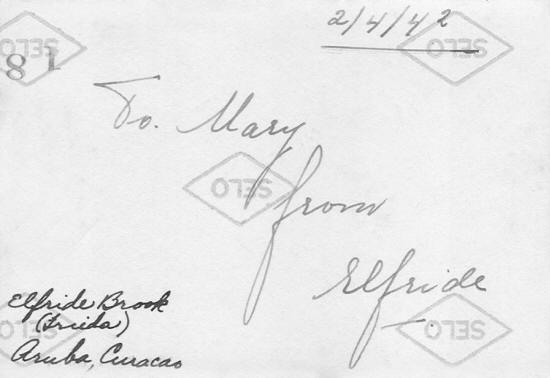 2/4/42
SELO
SELO
81
To. Mary
SELO
from
Elfride
Elfride Brook
(Frieda)
Aruba, Curacao
SELO
SELO